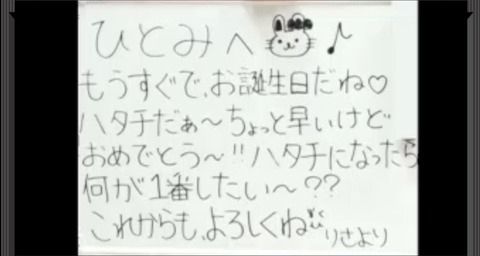 ひとみへ♪
もうすぐで、お誕生日だね♡
ハタチだぁ〜ちょっと早いけど
おめでとう〜!!ハタチになったら
何が1番したい〜??
これからも、よろしくね
りさより